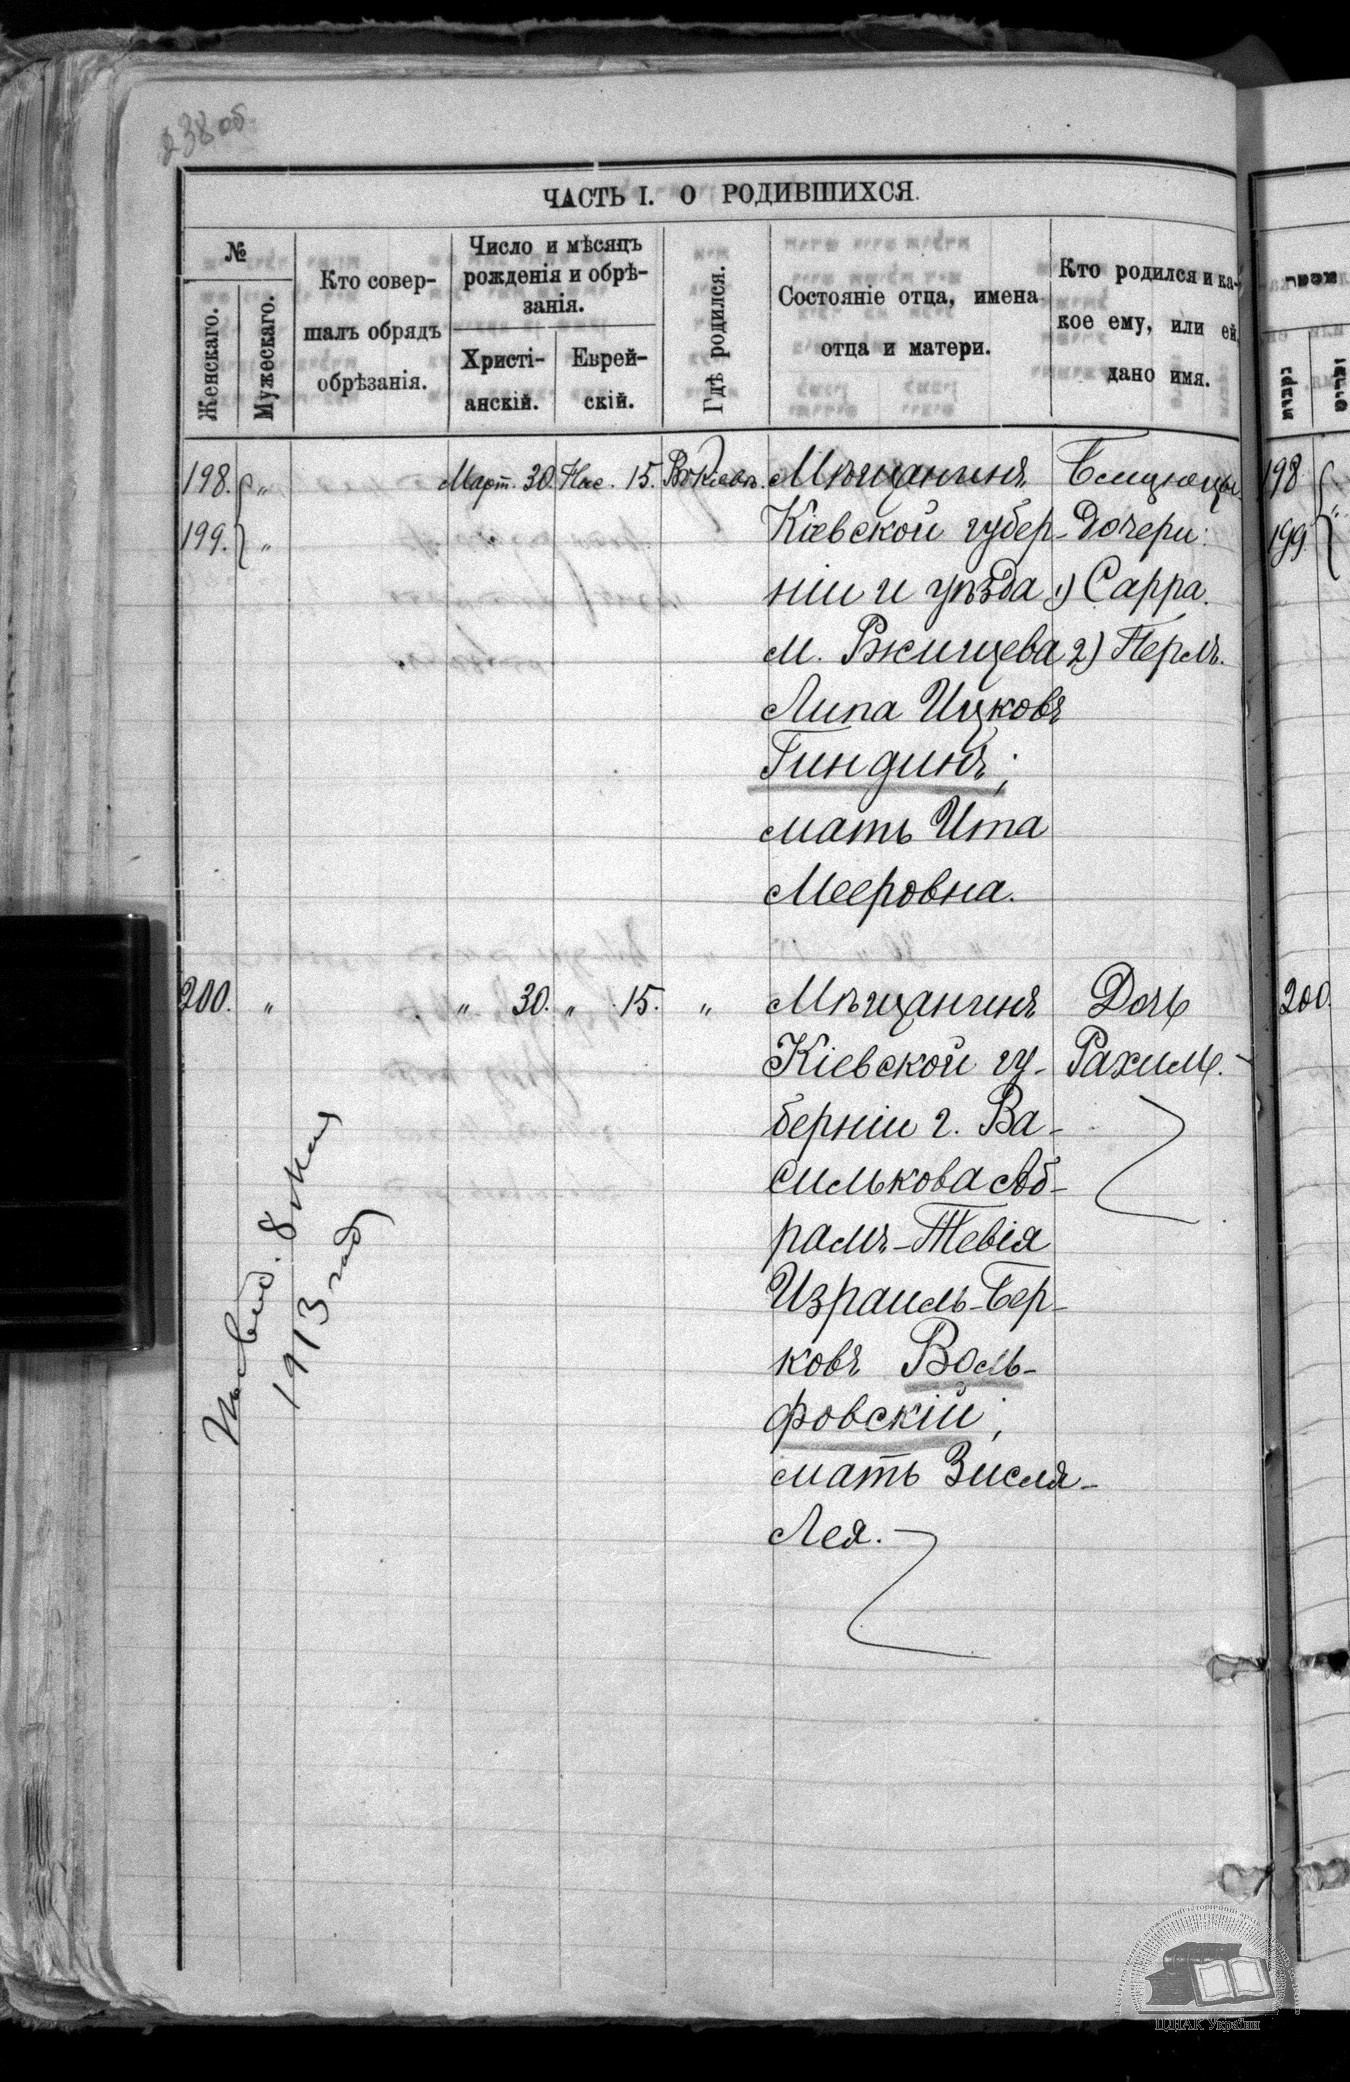 238об
ЧАСТЬ I. О РОДИВШИХСЯ.
№
Женскаго.
Мужескаго.
Кто совер-
шалъ обрядъ
обрѣзанія.
Число и мѣсяцъ
рожденія и обрѣ-
занія.
Христі-
анскій.
Еврей-
скій.
Гдѣ родился.
Состояніе отца, имена
отца и матери.
Кто родился и ка-
кое ему, или ей
дано имя.
198. „ Март. 30. Нис. 15. Въ Кіевѣ. Мѣщанинъ Близнецы
199. „ Кіевской губер- дочери:
ніи и уѣзда 1) Сарра.
м. Ржищева 2) Перль.
Липа Ицковъ
Гиндинъ;
мать Ита
Мееровна.
200. „ „ 30. „ 15. „ Мѣщанинъ Дочь
Кіевской гу- Рахиль.
берніи г. Ва-
силькова Аб-
рамъ-Тевія
Израиль-Бер-
ковъ Воль-
фовскій;
мать Зисля-
Лея.
8 мая
1913 год
198
199
200.
ЦДІАК України